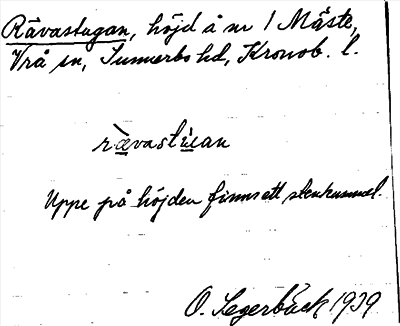 Rävastugan, höjd å nr 1 Måste,
Vrå sn, Sunnerbo hd, Kronob. l.
rævastuan
Uppe på höjden finns ett stenkummel.
O. Segerbäck 1939